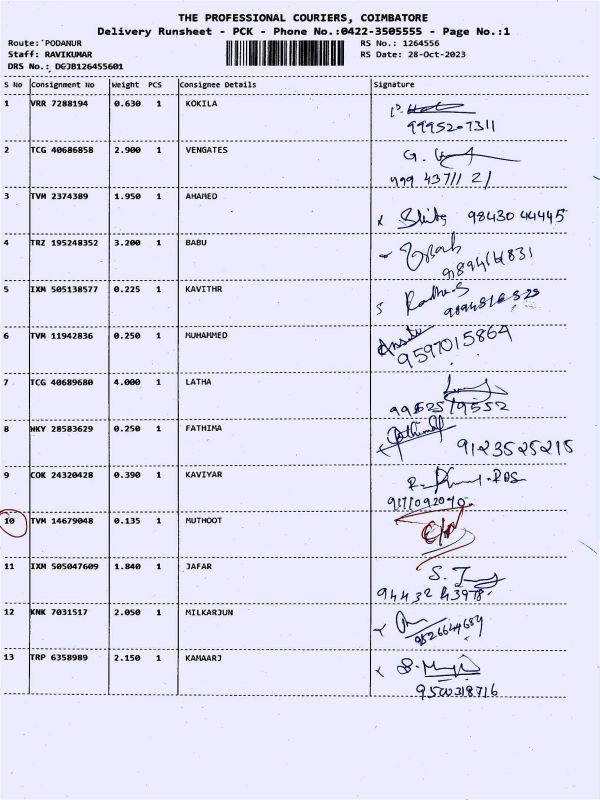 THE PROFESSIONAL COURIERS, COIMBATORE
Delivery Runsheet - PCK - Phone No.:0422-3505555 - Page No.:1
Route: PODANUR RS No.: 1264556
Staff: RAVIKUMAR RS Date: 28-Oct-2023
DRS No.: DGJB126455601
S No Consignment No Weight PCS Consignee Details Signature
1 VRR 7288194 0.630 1 KOKILA
9995207311
2 TCG 40686858 2.900 1 VENGATES
999 43711 21
3 TVM 2374389 1.950 1 AHAMED
98430 44445
4 TRZ 195248352 3.200 1 BABU
5 IXM 505138577 0.225 1 KAVITHR
6 TVM 11942836 0.250 1 MUHAMMED
9597015864
7 TCG 40689680 4.000 1 LATHA
99525 19552
8 WKY 28583629 0.250 1 FATHIMA
9123525215
9 COK 24320428 0.390 1 KAVIYAR
10 TVM 14679048 0.135 1 MUTHOOT
11 IXM 505047609 1.840 1 JAFAR
94432 43978
12 KNK 7031517 2.050 1 MILKARJUN
9526644689
13 TRP 6358989 2.150 1 KAMAARJ
9500318716